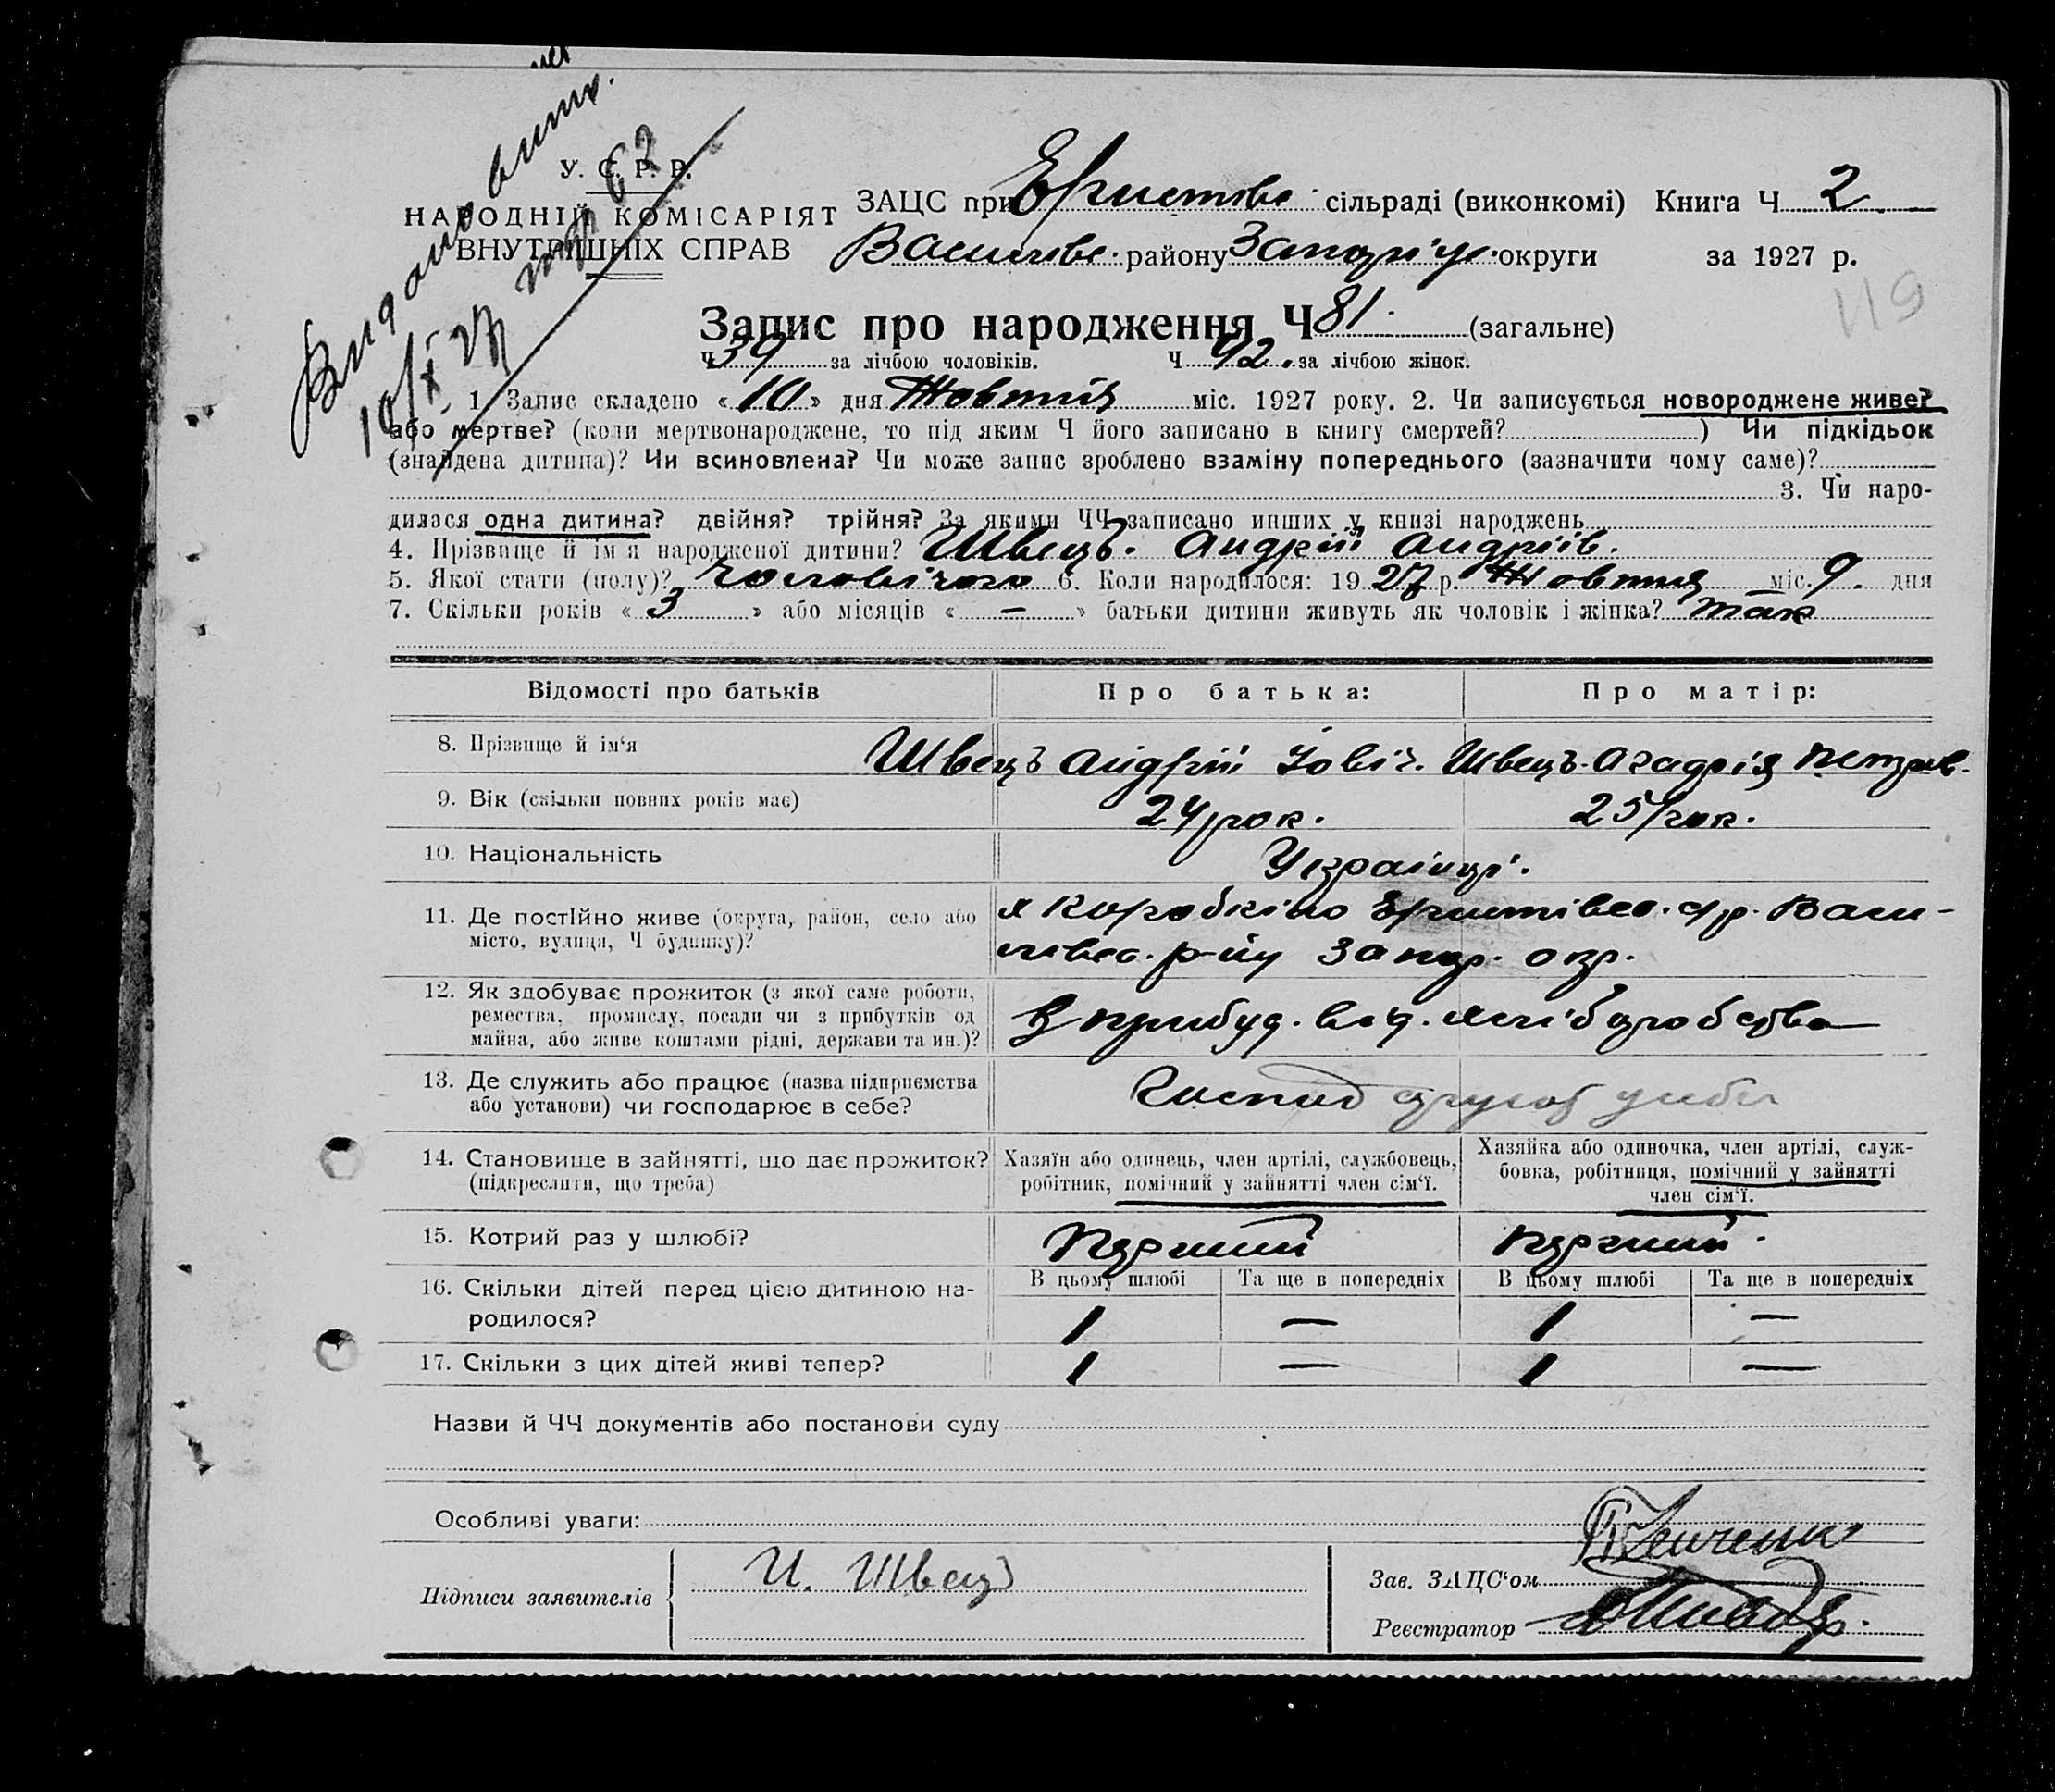 Видано випис.
10/X 27
У. С. Р. Р.
НАРОДНІЙ КОМІСАРІЯТ
ВНУТРІШНІХ СПРАВ
ЗАЦС при Еристівс. сільраді (виконкомі) Книга Ч 2
Василівс. району Запоріз. округи за 1927 р.
119
Запис про народження Ч 81. (загальне)
Ч 39 за лічбою чоловіків. Ч 42. за лічбою жінок.
1. Запис складено « 10 » дня Жовтня міс. 1927 року. 2. Чи записується новороджене живе?
або мертве? (коли мертвонароджене, то під яким Ч його записано в книгу смертей? ) Чи підкідьок
(знайдена дитина)? Чи всиновлена? Чи може запис зроблено взаміну попереднього (зазначити чому саме)?
3. Чи наро-
дилася одна дитина? двійня? трійня? За якими ЧЧ записано инших у книзі народжень
4. Прізвище й ім'я народженої дитини? Швець. Андрій Андріїв.
5. Якої стати (полу)? чоловічого 6. Коли народилося: 1927 р. Жовтня міс. 9. дня
7. Скільки років « 3 » або місяців « — » батьки дитини живуть як чоловік і жінка? так
Відомості про батьків Про батька: Про матір:
8. Прізвище й ім'я Швець Андрій Іовіч. Швець. Петрів.
9. Вік (скільки повних років має) 24 рок. 25 рок.
10. Національність Українці.
11. Де постійно живе (округа, район, село або х Коробкіно Еристівсс. с/р. Васи-
місто, вулиця, Ч будинку)? лівсс. р-ну Запор. окр.
12. Як здобуває прожиток (з якої саме роботи,
ремества, промислу, посади чи з прибутків од З прибут. від. хліборобства
майна, або живе коштами рідні, держави та ин.)?
13. Де служить або працює (назва підприємства
або установи) чи господарює в себе? Господ
14. Становище в зайнятті, що дає прожиток? Хазяїн або одинець, член артілі, службовець, Хазяйка або одиночка, член артілі, служ-
(підкреслити, що треба) робітник, помічний у зайнятті член сім'ї. бовка, робітниця, помічний у зайнятті
член сім'ї.
15. Котрий раз у шлюбі? Перший перший.
16. Скільки дітей перед цією дитиною на- В цьому шлюбі Та ще в попередніх В цьому шлюбі Та ще в попередніх
родилося? 1 — 1 —
17. Скільки з цих дітей живі тепер? 1 — 1 —
Назви й ЧЧ документів або постанови суду
Особливі уваги:
Підписи заявителів И. Швец
Зав. ЗАЦС'ом
Реєстратор